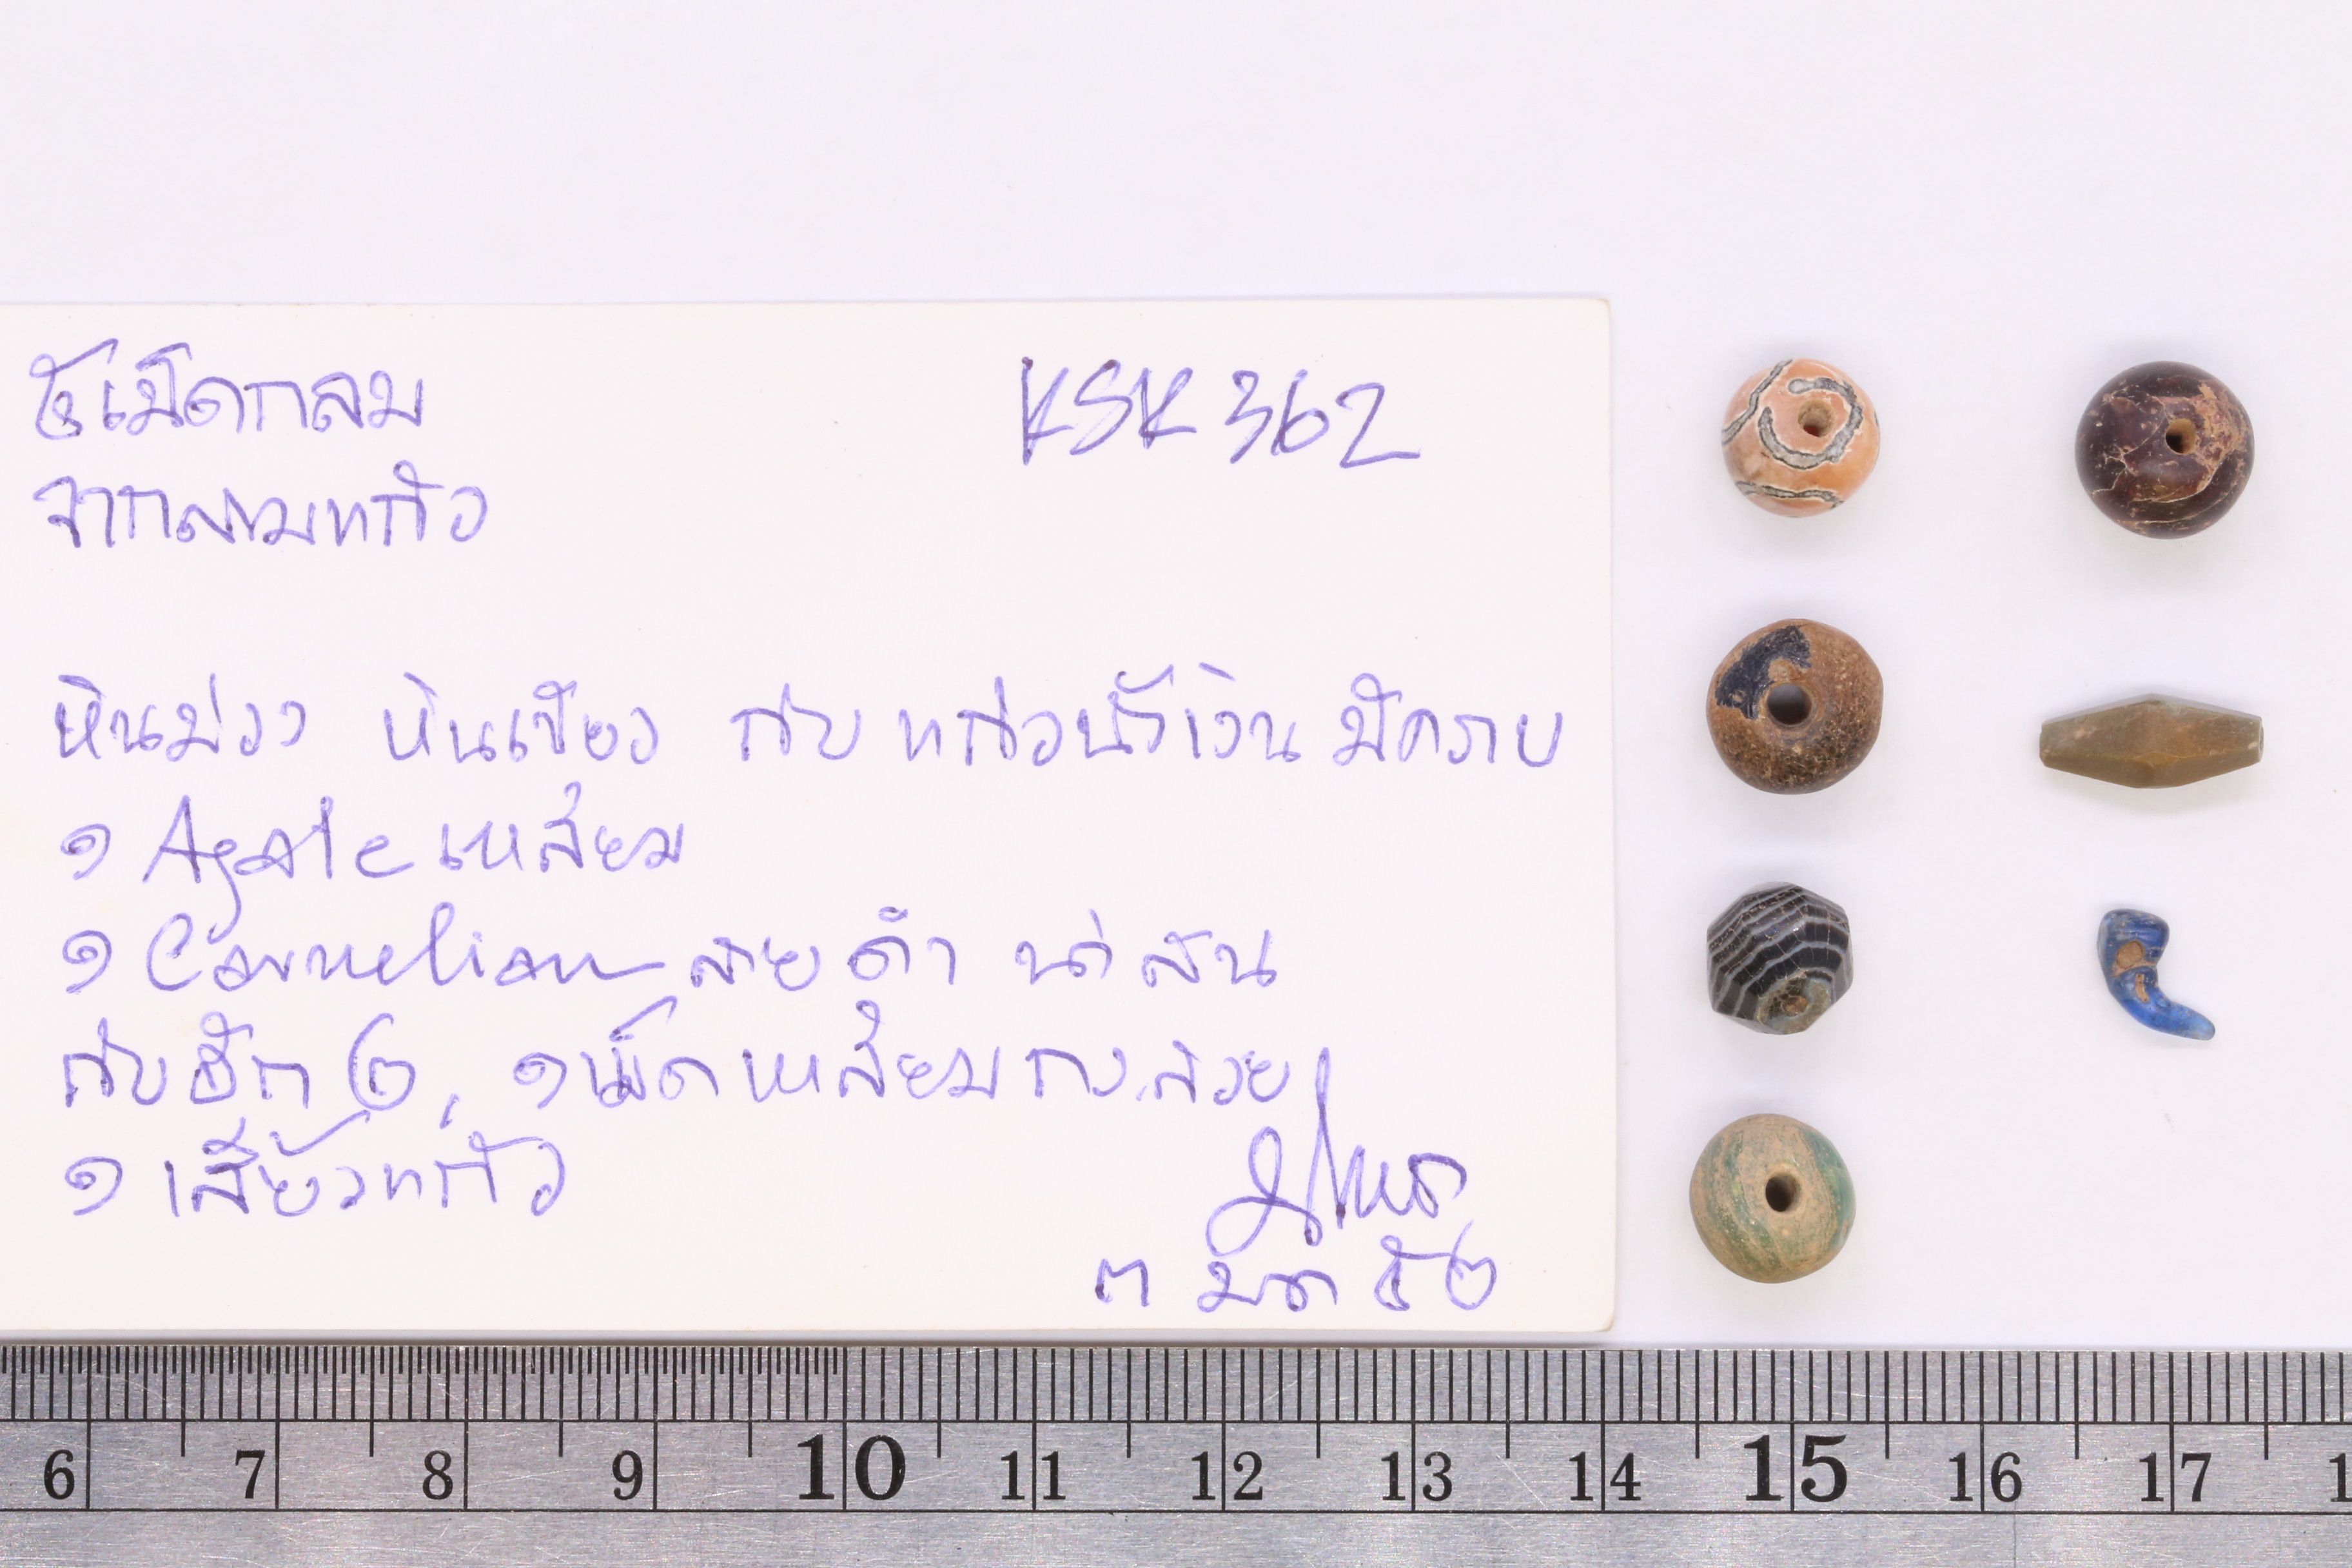 ๕ เม็ดกลม
KSK 362
จากสามแก้ว
หินม่วง หินเขียว กับ แก้วน้ำเงิน มีคราบ
๑ Agate เหลี่ยม
๑ Carnelian ลาย ดำ น่า สน
กับ อีก ๒, ๑ เม็ด เหลี่ยม กง สวย
๑ เสี้ยวแก้ว
๓ มีค ๕๒
6 7 8 9 10 11 12 13 14 15 16 17 1